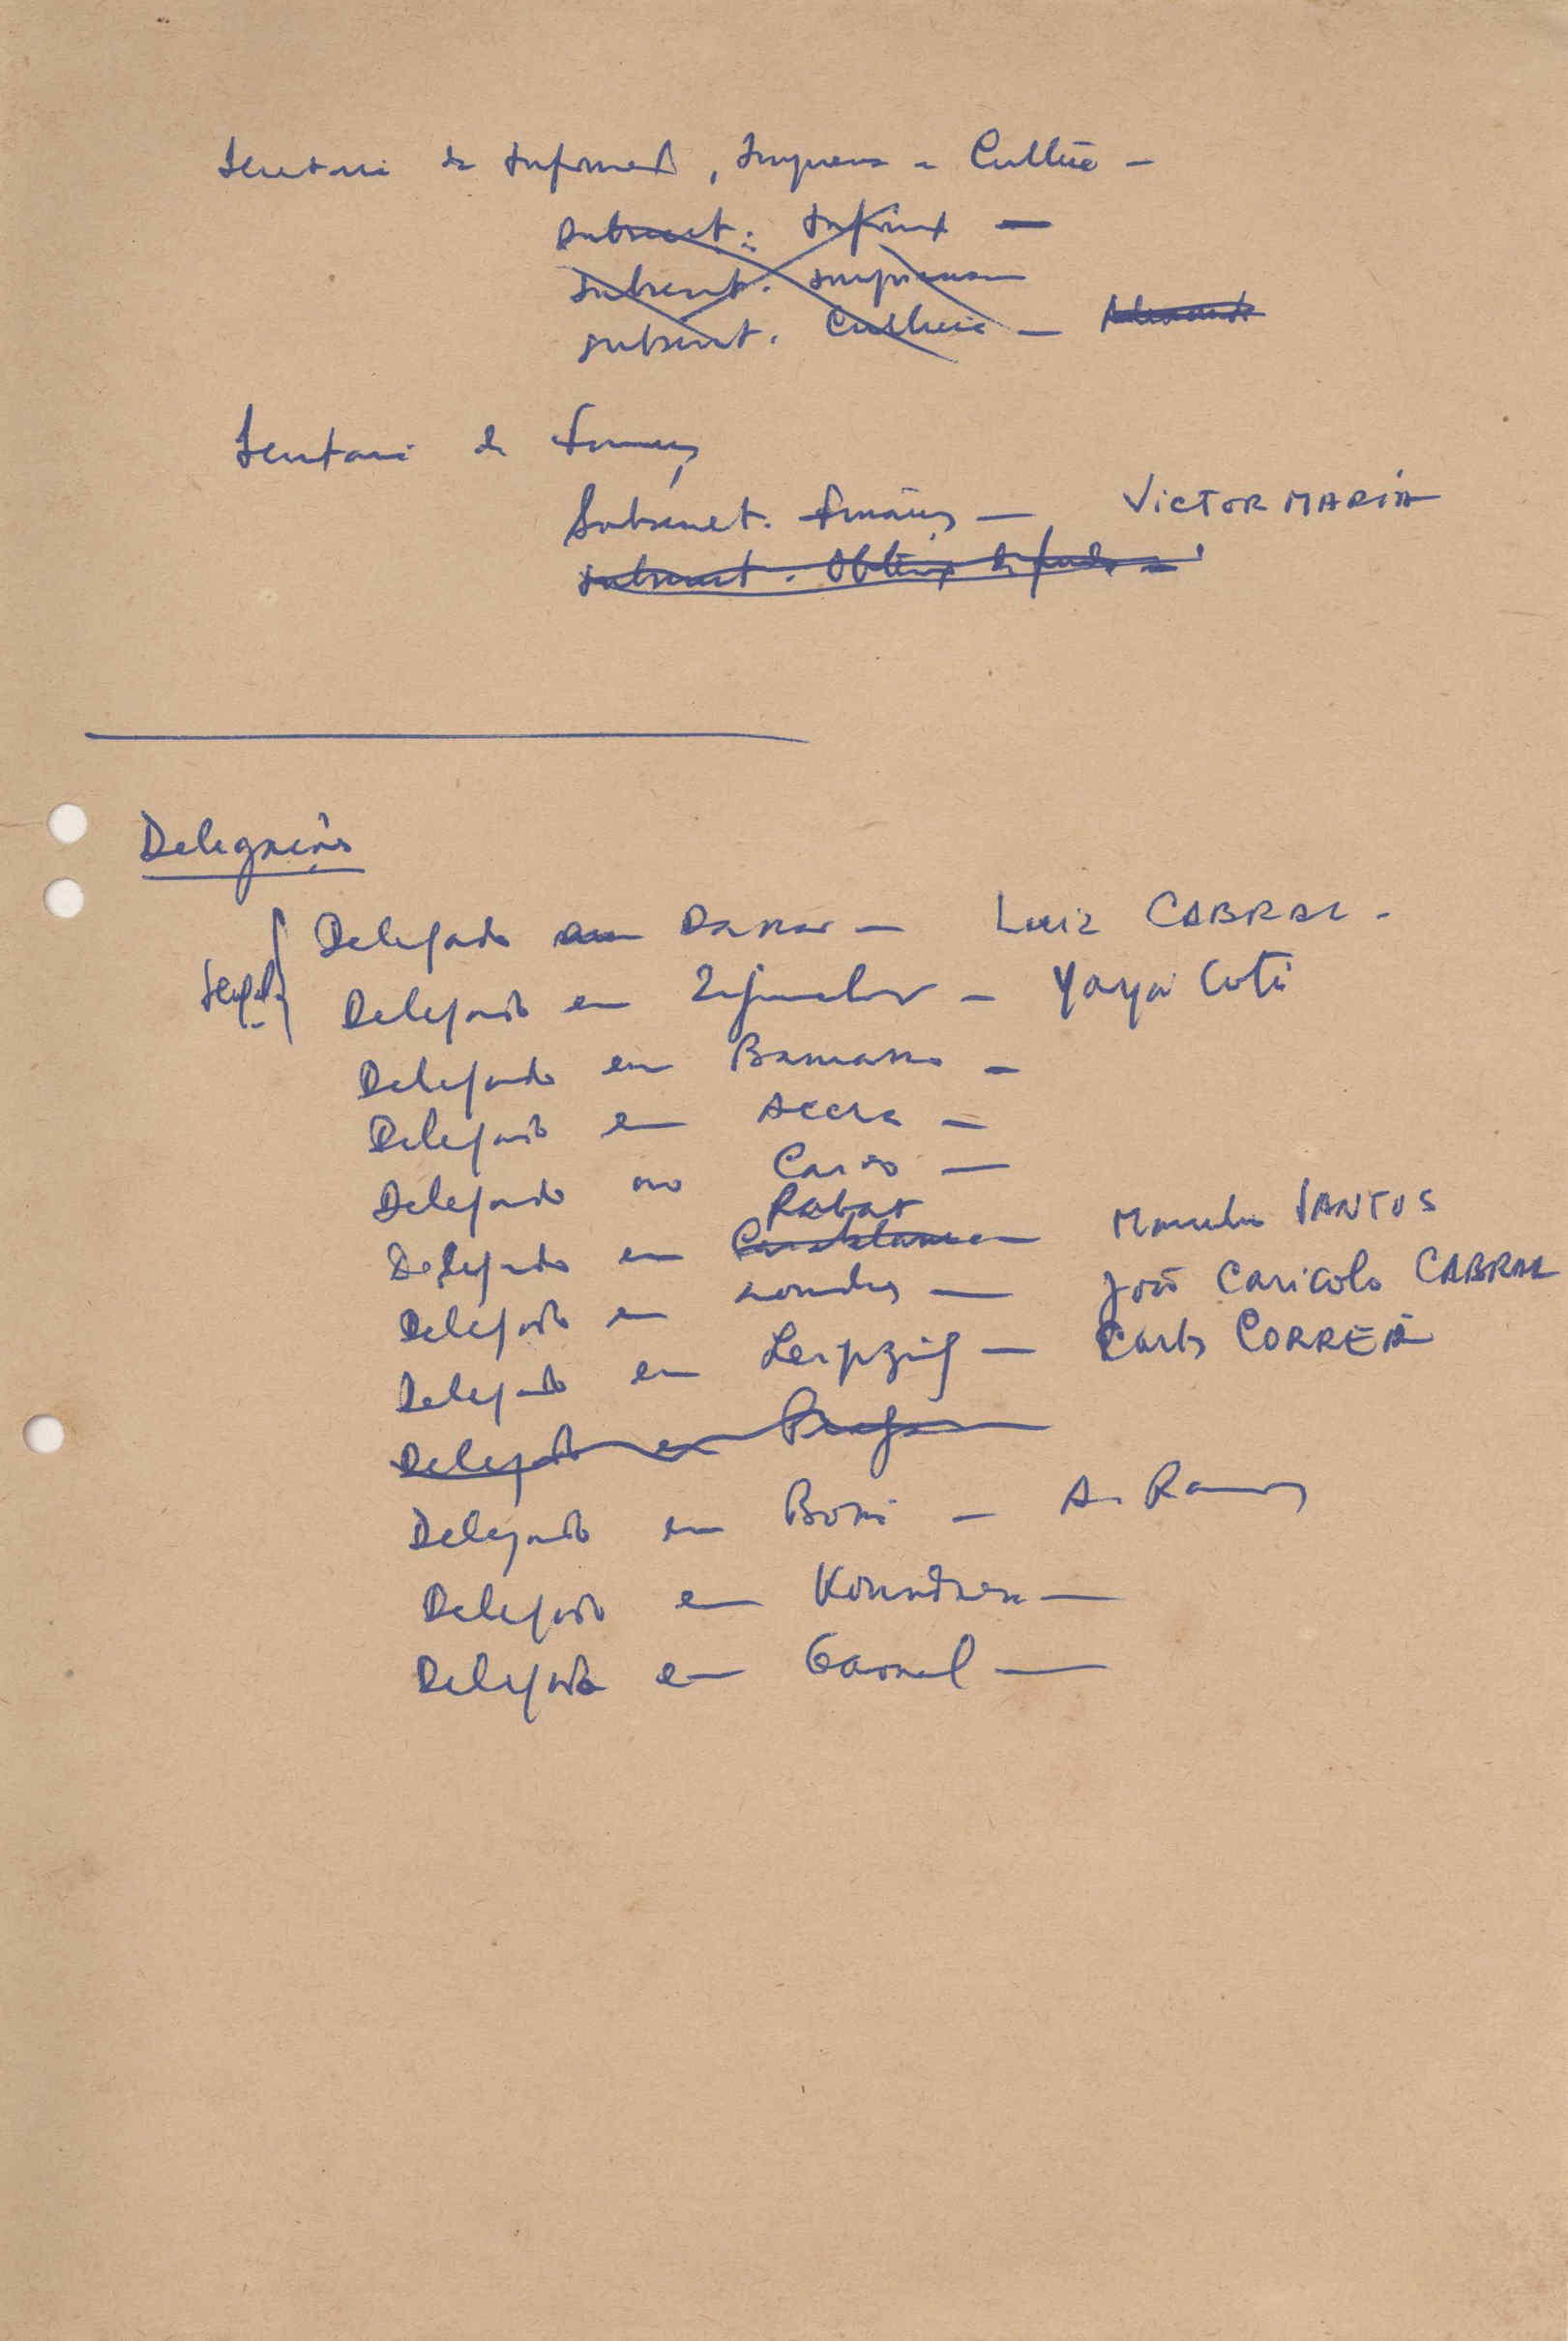 Secretari de Informaç, Imprensa e Cultura -
Subsecret. Informaç -
Subsecret. Imprensa
Subsecret. Cultura -
Secretari de Finanças
Subsecret. Finanças - VICTOR MARIA
Subsecret. Obtenç de fundos -
Delegações
Delegado em Dakar - Luiz CABRAL -
Delegado em Ziguinchor - Yaya Coté
Delegado em Bamako -
Delegado em Accra -
Delegado no Cairo -
Rabat
Delegado em Casablanca Marcelino SANTOS
Delegado em Londres - João Cariolo CABRAL
Delegado em Leipzig - Carlos CORREIA
Delegado em Praga
Delegado em Boké - A. Ramos
Delegado em Koundara -
Delegado em Gaoual -